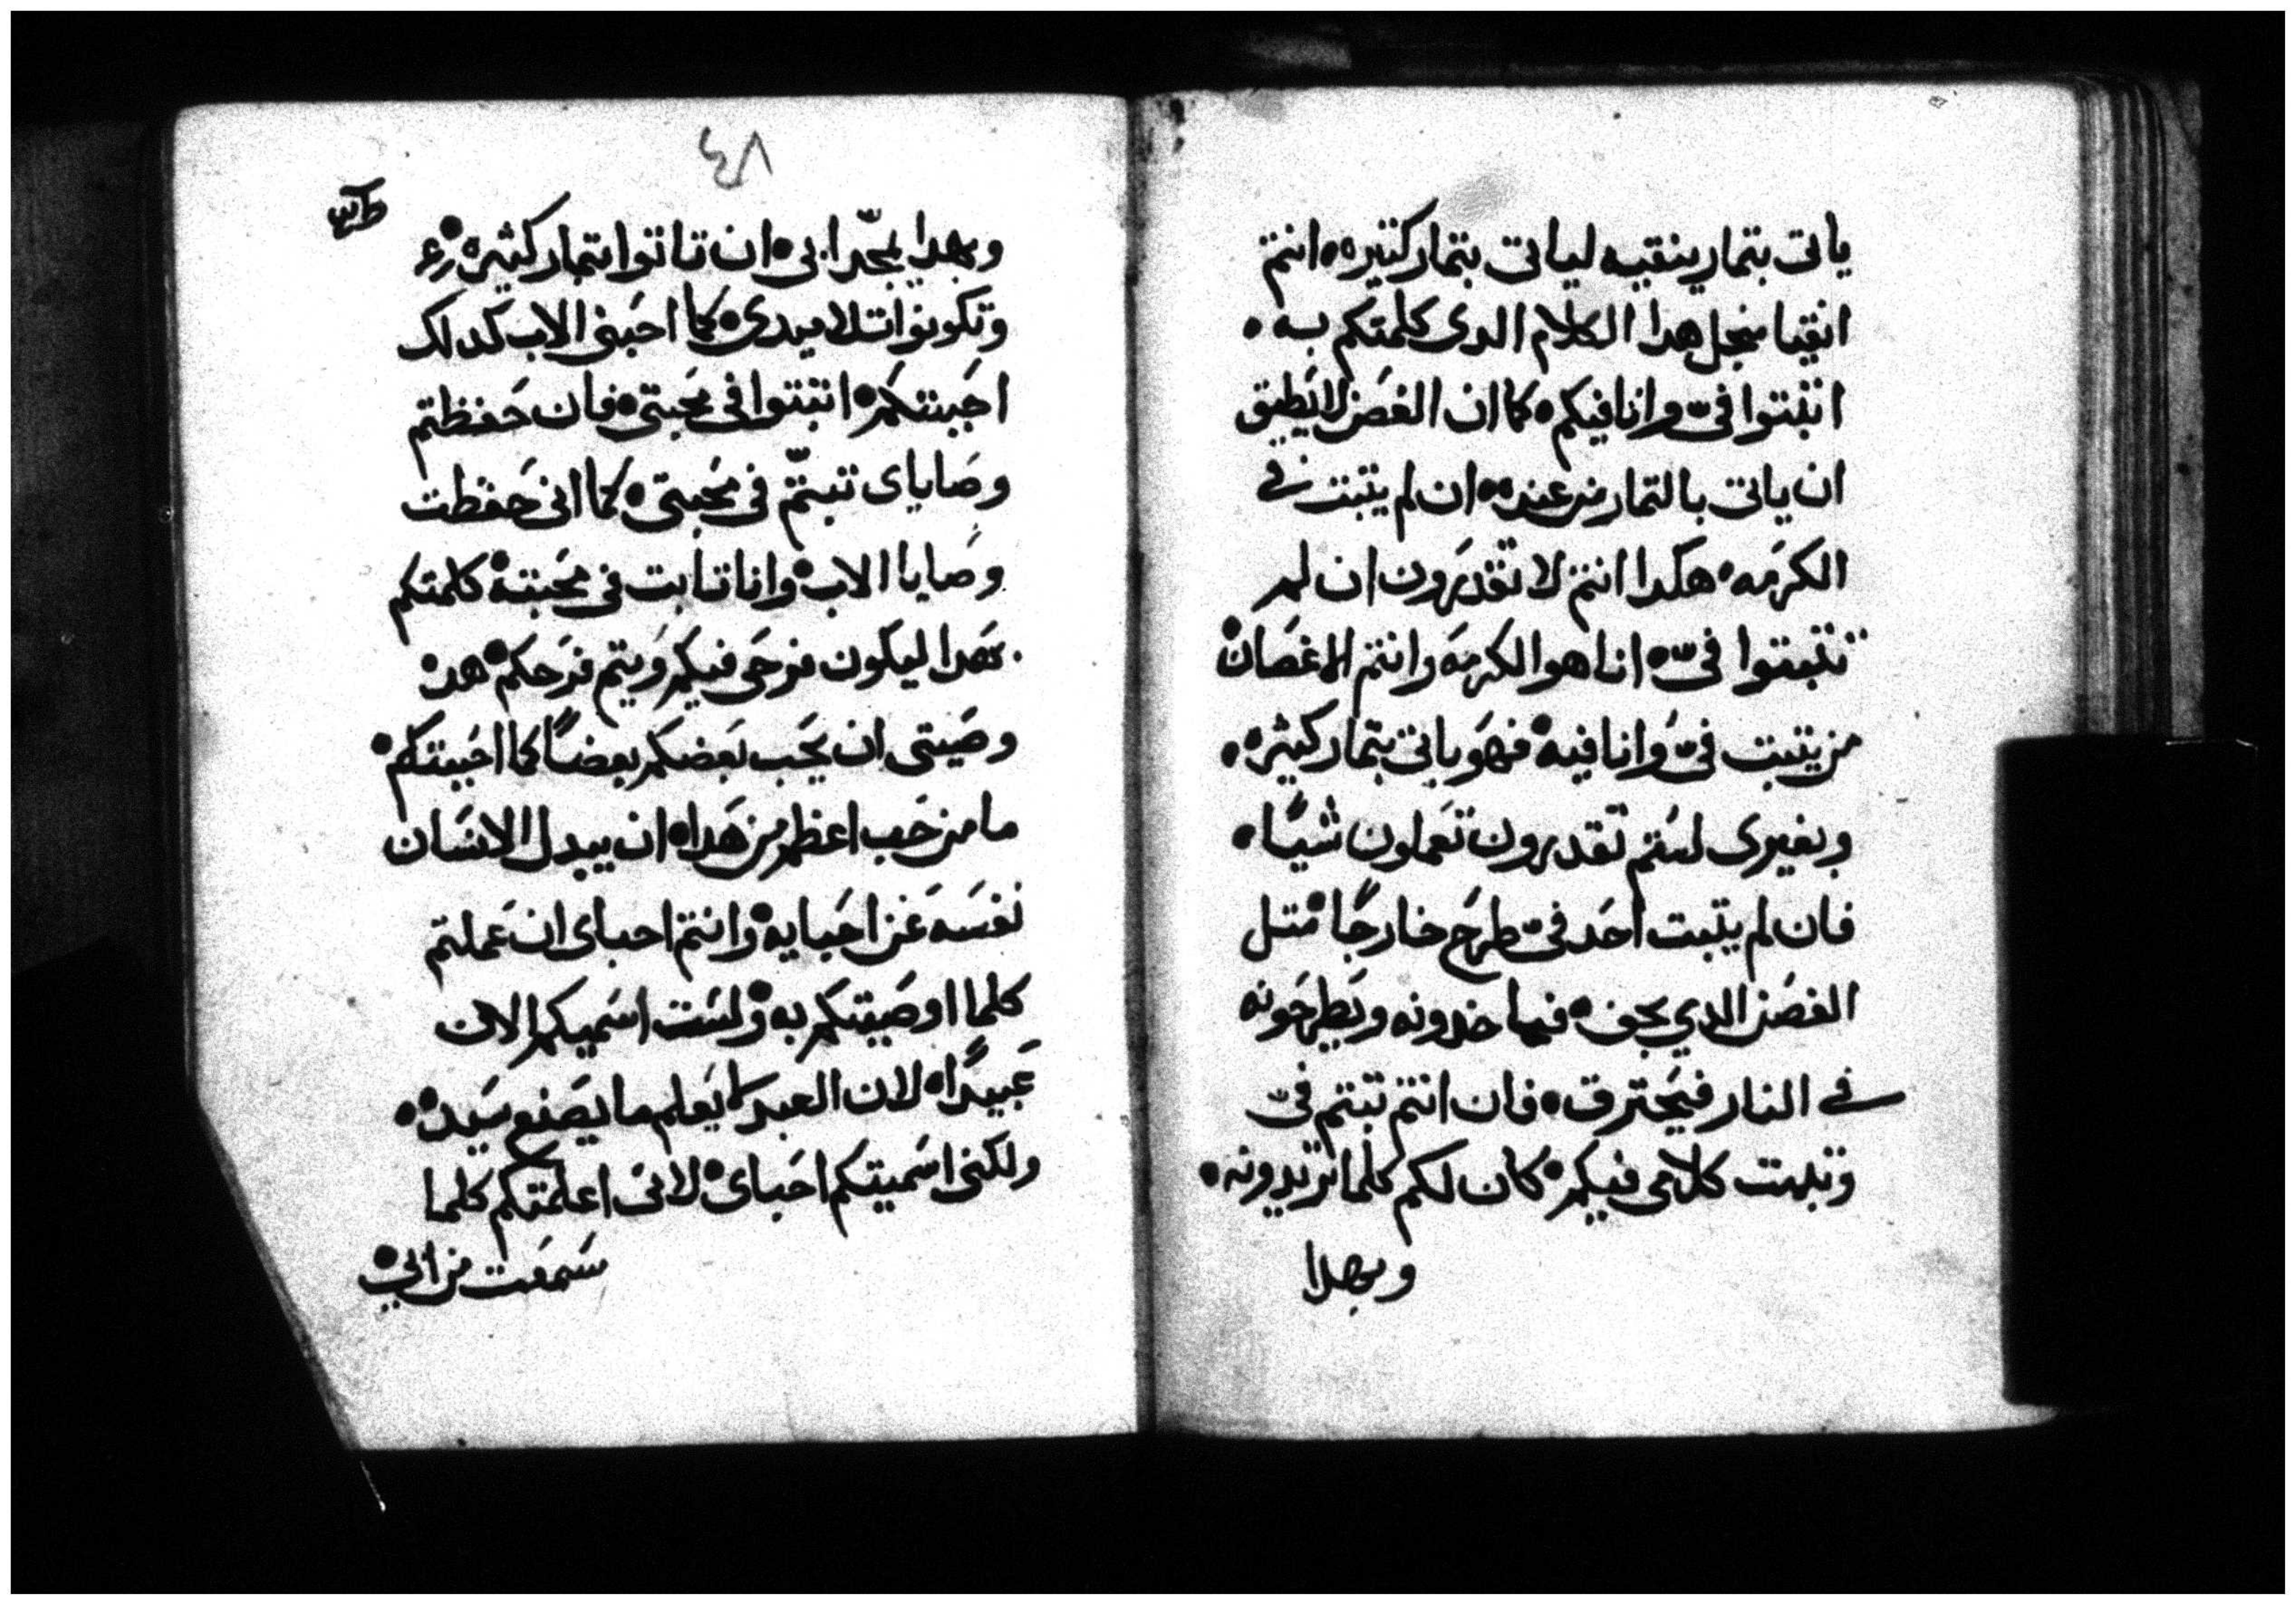 ياتى بتمار ينقيه لياتى بتمار كتيره انتم
انقيا منجل هدا الكلام الدى كلمتكم به
اتبتوا فىّ وانا فيكم كما ان الغصن لا يطيق
ان ياتى بالتمار من عنده ان لم يتبت فى
الكرمه هكدا انتم لا تقدرون ان لم
تتبتوا فىّ انا هو الكرمه وانتم الاغصان
من يتبت فىّ وانا فيه فهو ياتى بتمار كثيره
وبغيرى لستم تقدرون تعملون شيًا
فان لم يتبت احد فىّ طرح خارجًا متل
الغصن الدي يجف فياخدونه ويطرحونه
فى النار فيحترق فان انتم تبتم فىّ
وتبتت كلامى فيكم كان لكم كلما تريدونه
وبهدا
٧٤
وبهدا يمجّد ابى ان تاتوا بتمار كثيره
وتكونوا تلاميدى كما احبنى الاب كدلك
احببتكم اتبتوا فى محبتى فان حفظتم
وصاياى تبتّم فى محبتى كما انى حفظت
وصايا الاب وانا تابت فى محبته كلمتكم
بهدا ليكون فرحى فيكم ويتم فرحكم هده
وصيتى ان يحب بعضكم بعضًا كما احببتكم
ما من حب اعظم من هدا ان يبدل الانسان
نفسه عن احبايه وانتم احباى ان عملتم
كلما اوصيتكم به ولست اسميكم الان
عبيدًا لان العبد لا يعلم ما يصنع سيده
ولكنى اسميتكم احباى لانى اعلمتكم كلما
سمعت من ابي